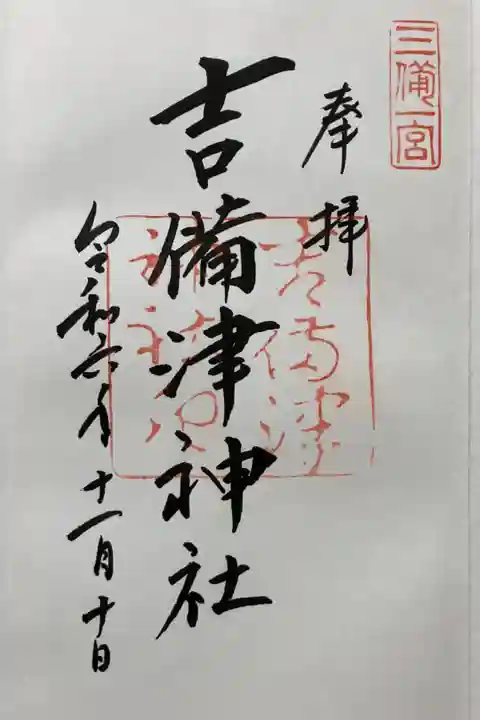 三備一宮
奉拝
吉備津神社
令和六年十一月十日